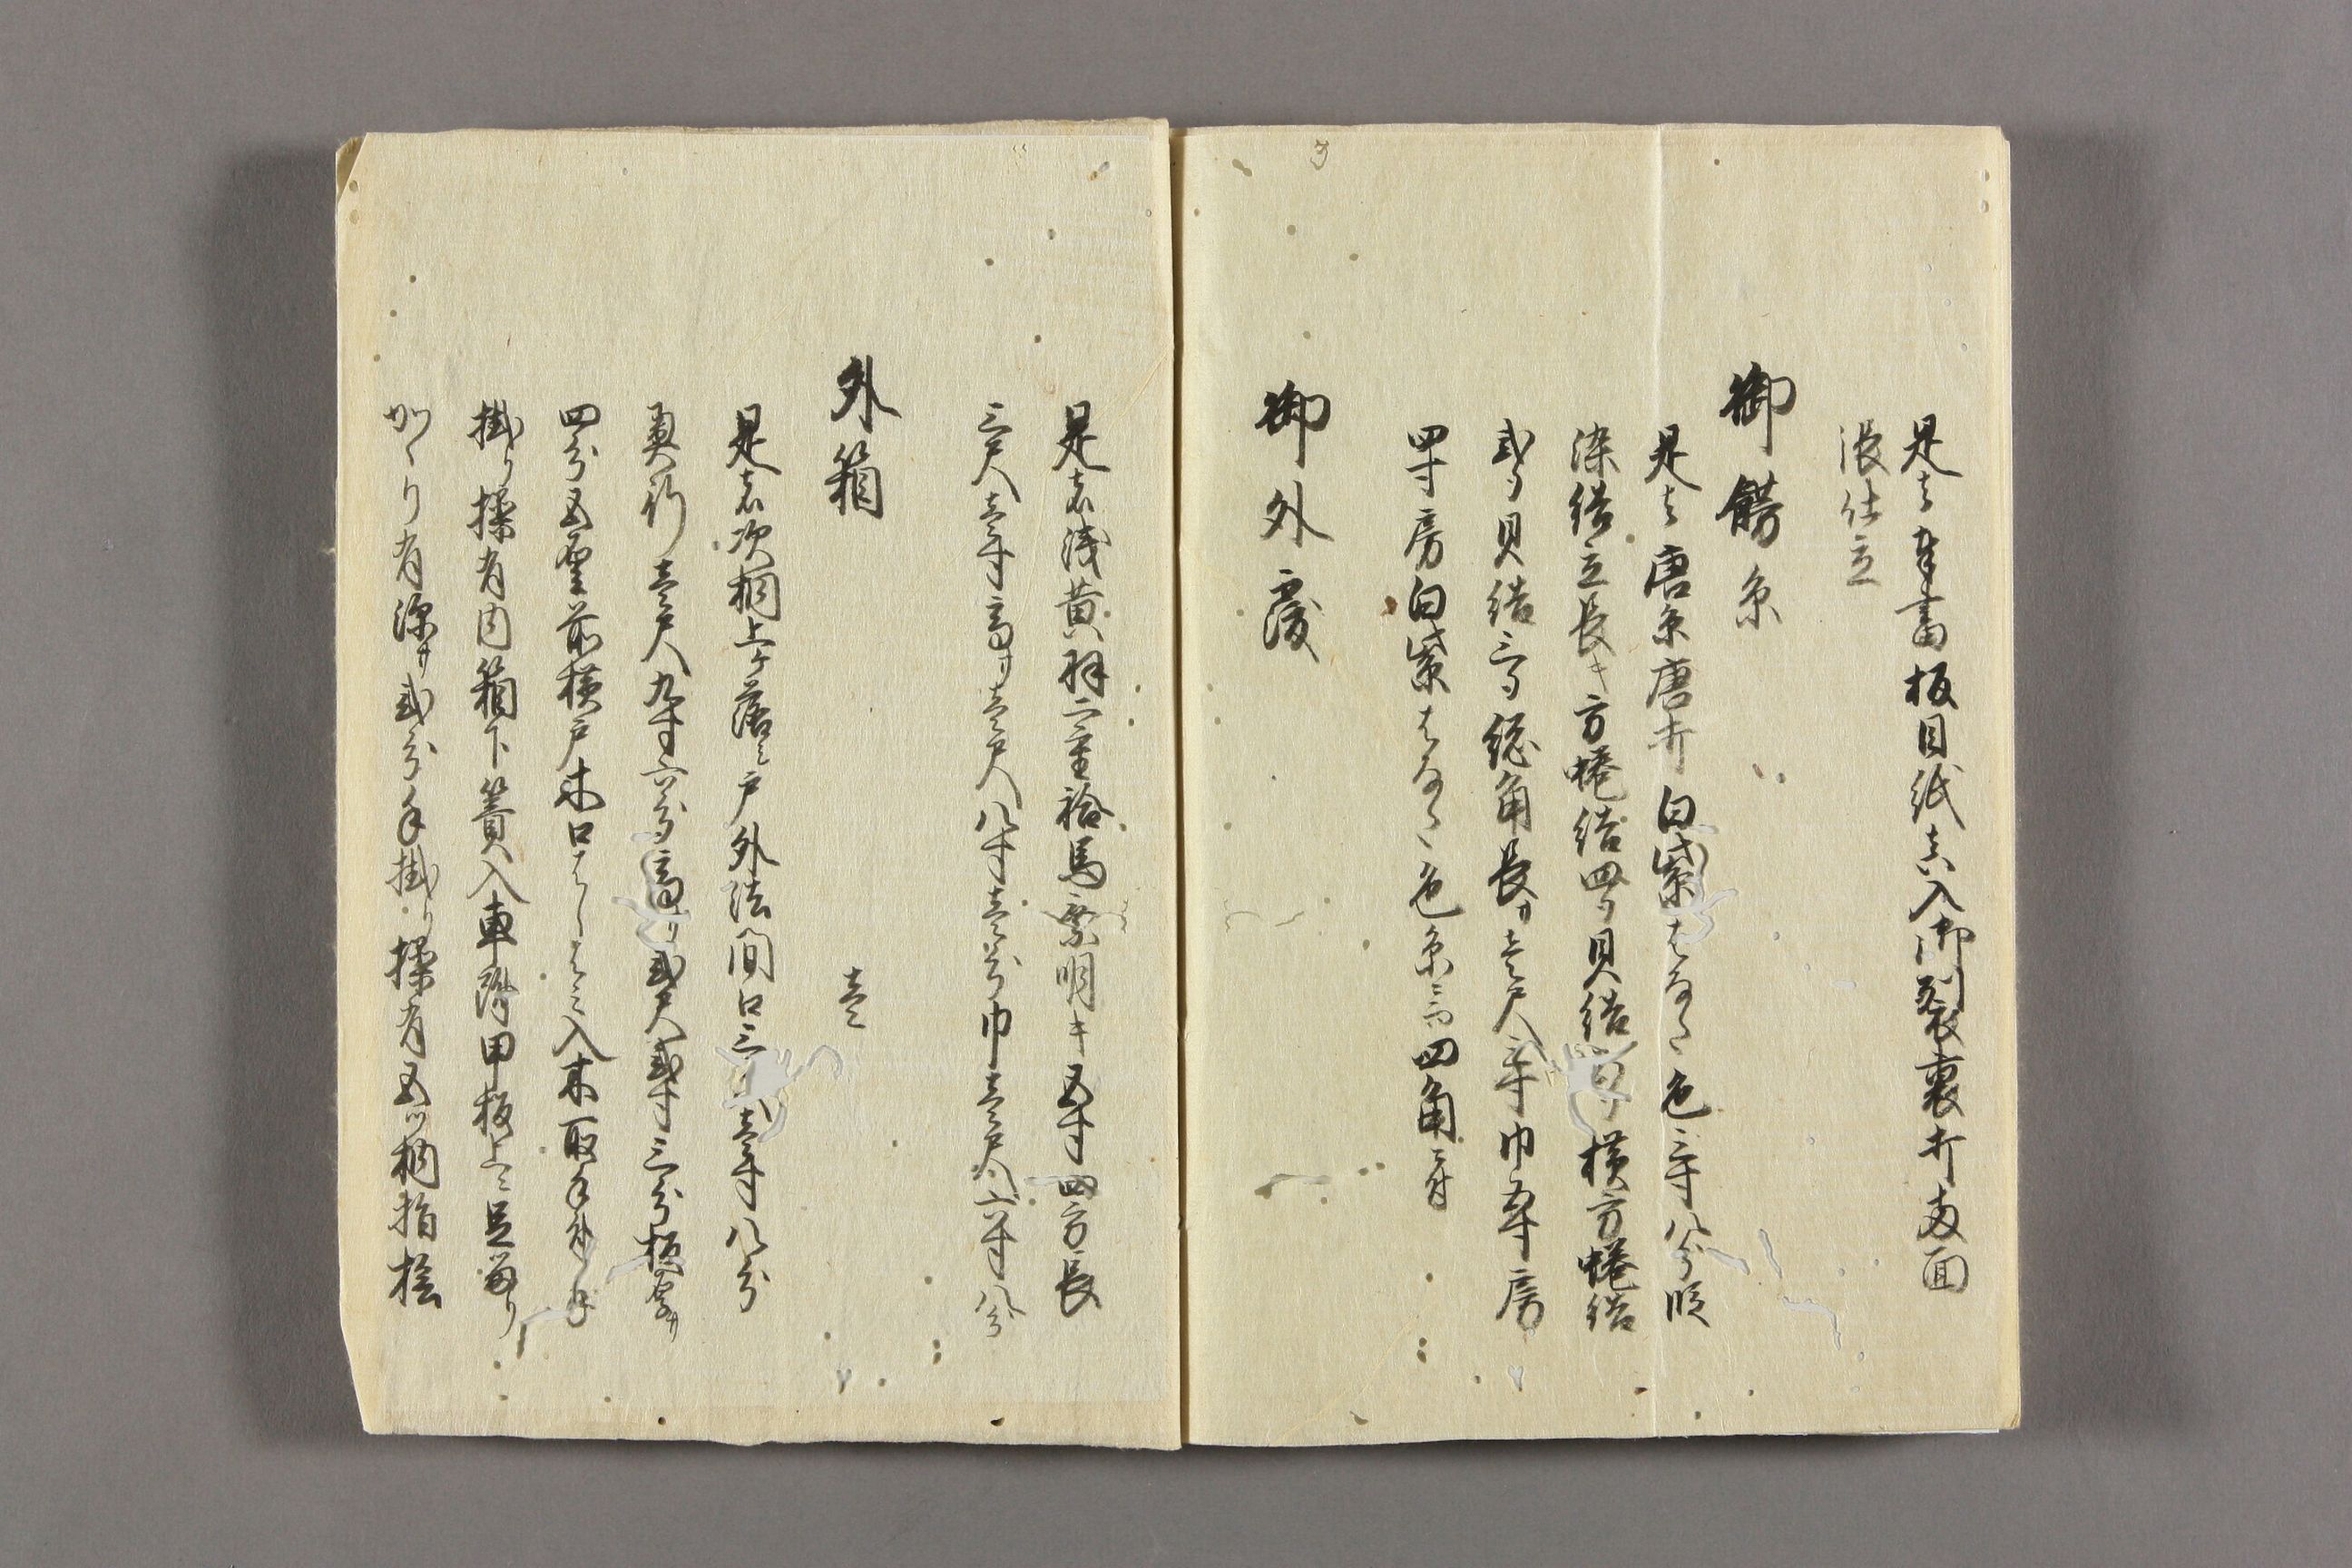 是者奉書板目紙真入御裂裏打両面
張仕立
御餝糸
是者唐糸唐打白紫はなた色三寸八分順
染結立長キ方蜷結四ツ貝結 横方蜷結
弐ツ貝結三ツ総角長サ壱尺三寸巾五寸房
四寸房白紫はなた色糸 四角ニ付
御外覆
是者浅黄羽二重袷馬乗明キ五寸四方長
三尺壱寸高サ壱尺八寸壱分巾壱尺六寸八分
外箱 壱
是者次桐上ケ落シ戸外法間口三 壱寸八分
奥行壱尺九寸六分高サ弐尺弐寸三分板厚サ
四分五厘前横戸木口はしはミ入木取手
掛り操有内箱下簀入車附甲板上ニ足留り
かゝり有深サ弐分手掛り操有五ツ桐指桧